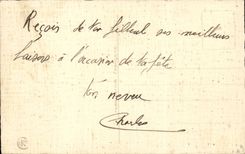 Reçois de ton filleul ses meilleurs
baisers à l'occasion de ta fête
Ton neveu
Charles